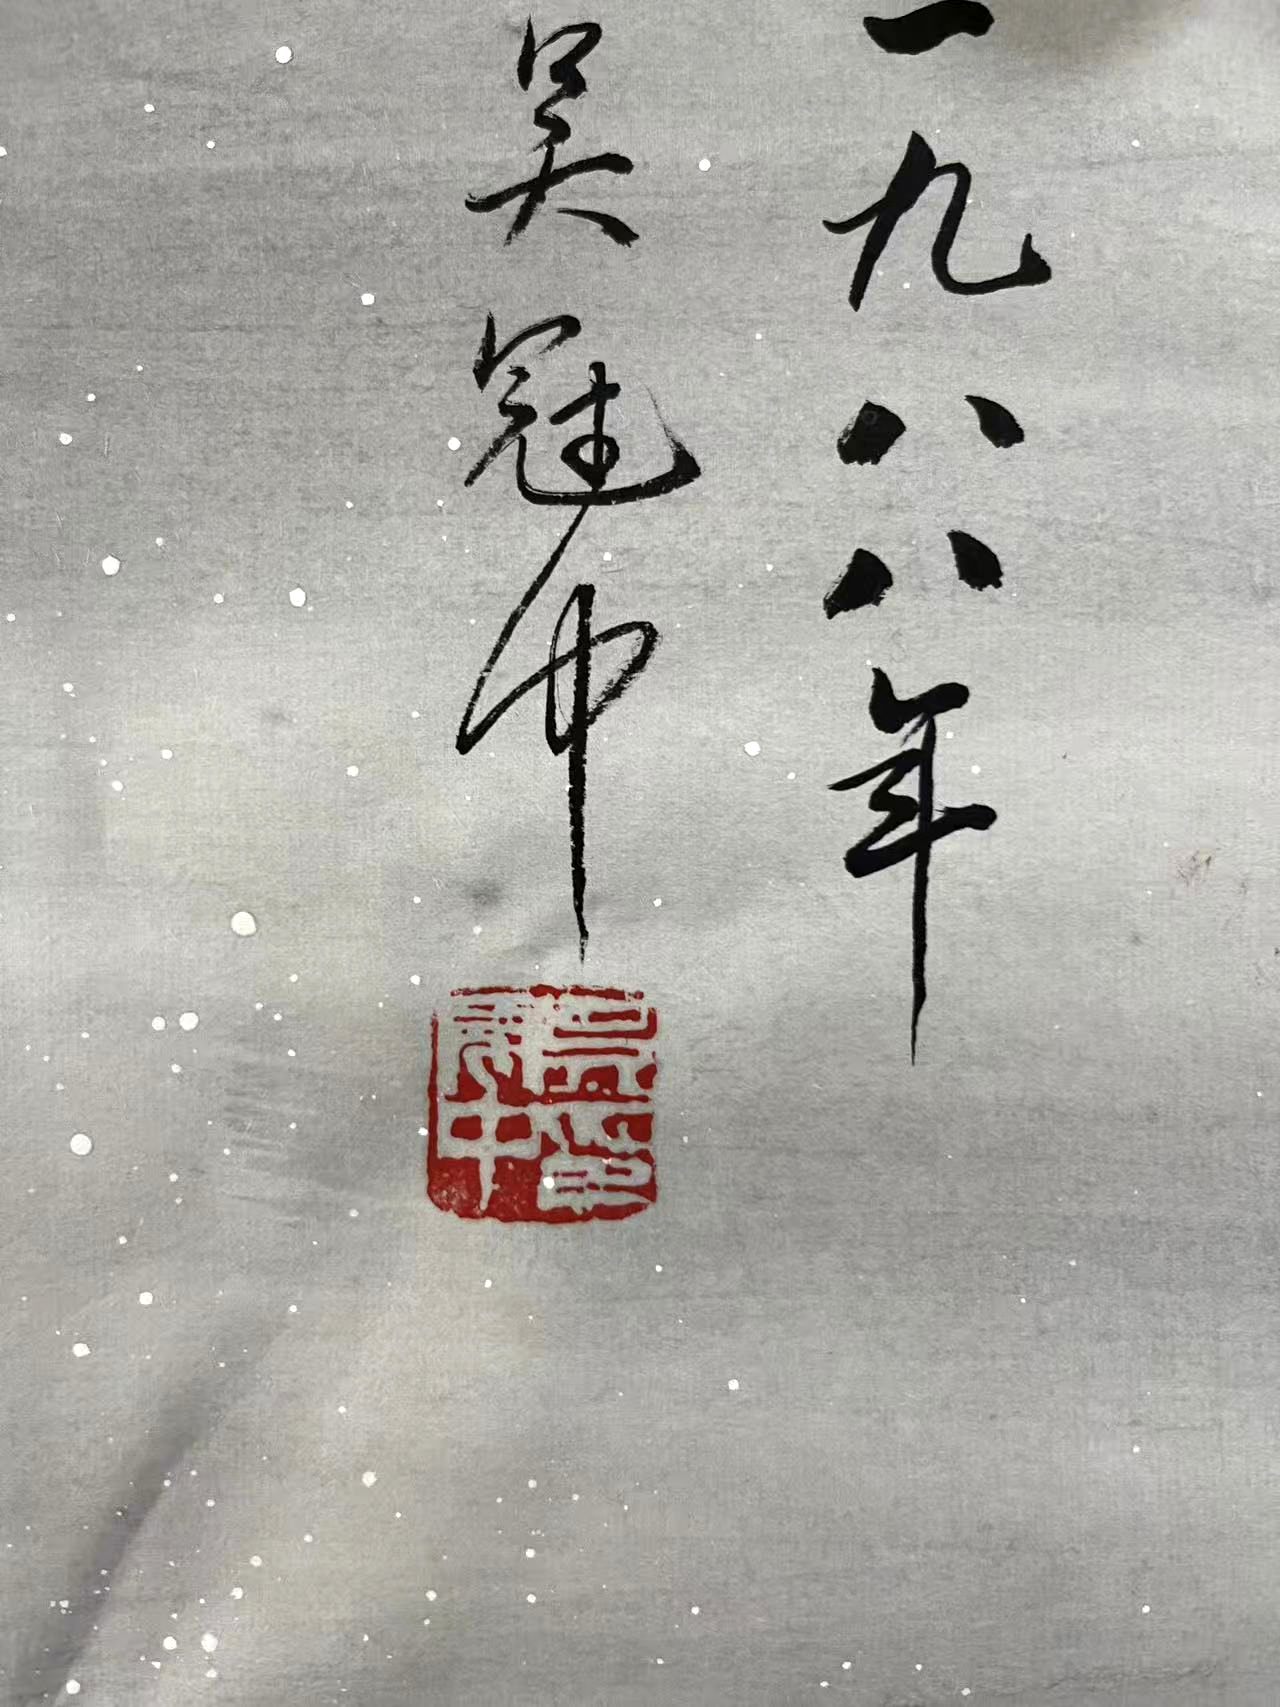 一九八八年
吴冠中
吴冠中印